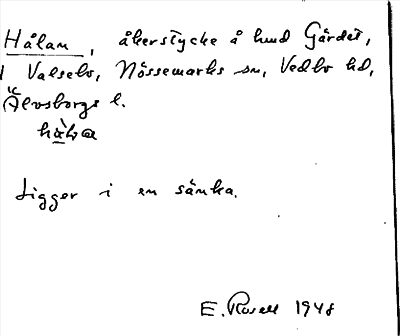 Hålan, åkerstycke å hmd Gärdet,
i Valsebo, Nössemarks sn, Vedbo hd,
Älvsborgs l.
hå̀ḷa
Ligger i en sänka.
E. Rosell 1948